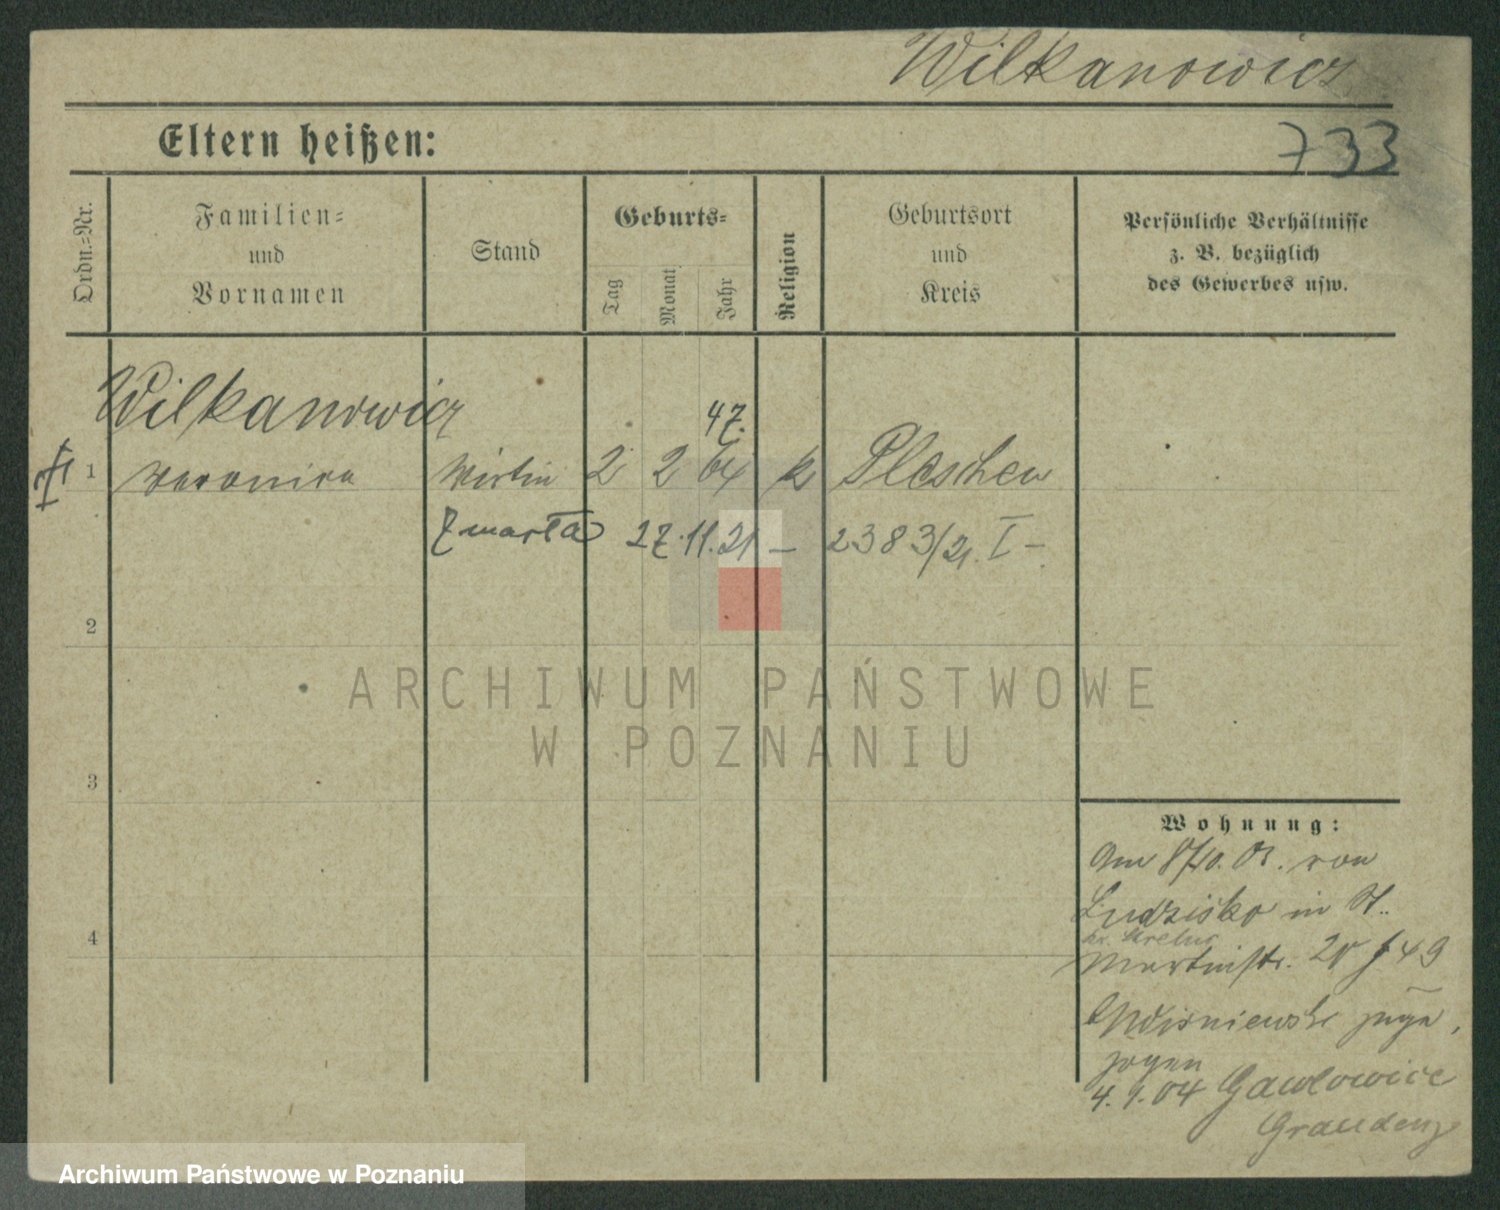 Wilkanowicz
733
Eltern heißen:
Ordn.-Nr.
Familien-
und
Vornamen
Stand
Geburts-
Tag
Monat
Jahr
Religion
Geburtsort
und
Kreis
Persönliche Verhältnisse
z. B. bezüglich
des Gewerbes usw.
Wilkanowicz
47.
1 Veronika Wirtin 2 2 k Pleschen
Zmarła 27.11.21 – 2383/21. I –
2
3
4
ARCHIWUM PAŃSTWOWE
W POZNANIU
Wohnung:
Am 8/10. 03. von
Ludzisko in St.
Martinstr. 49
Wisniewski zuge
zogen
4.1.04 Gawlowice
Graudenz
Archiwum Państwowe w Poznaniu